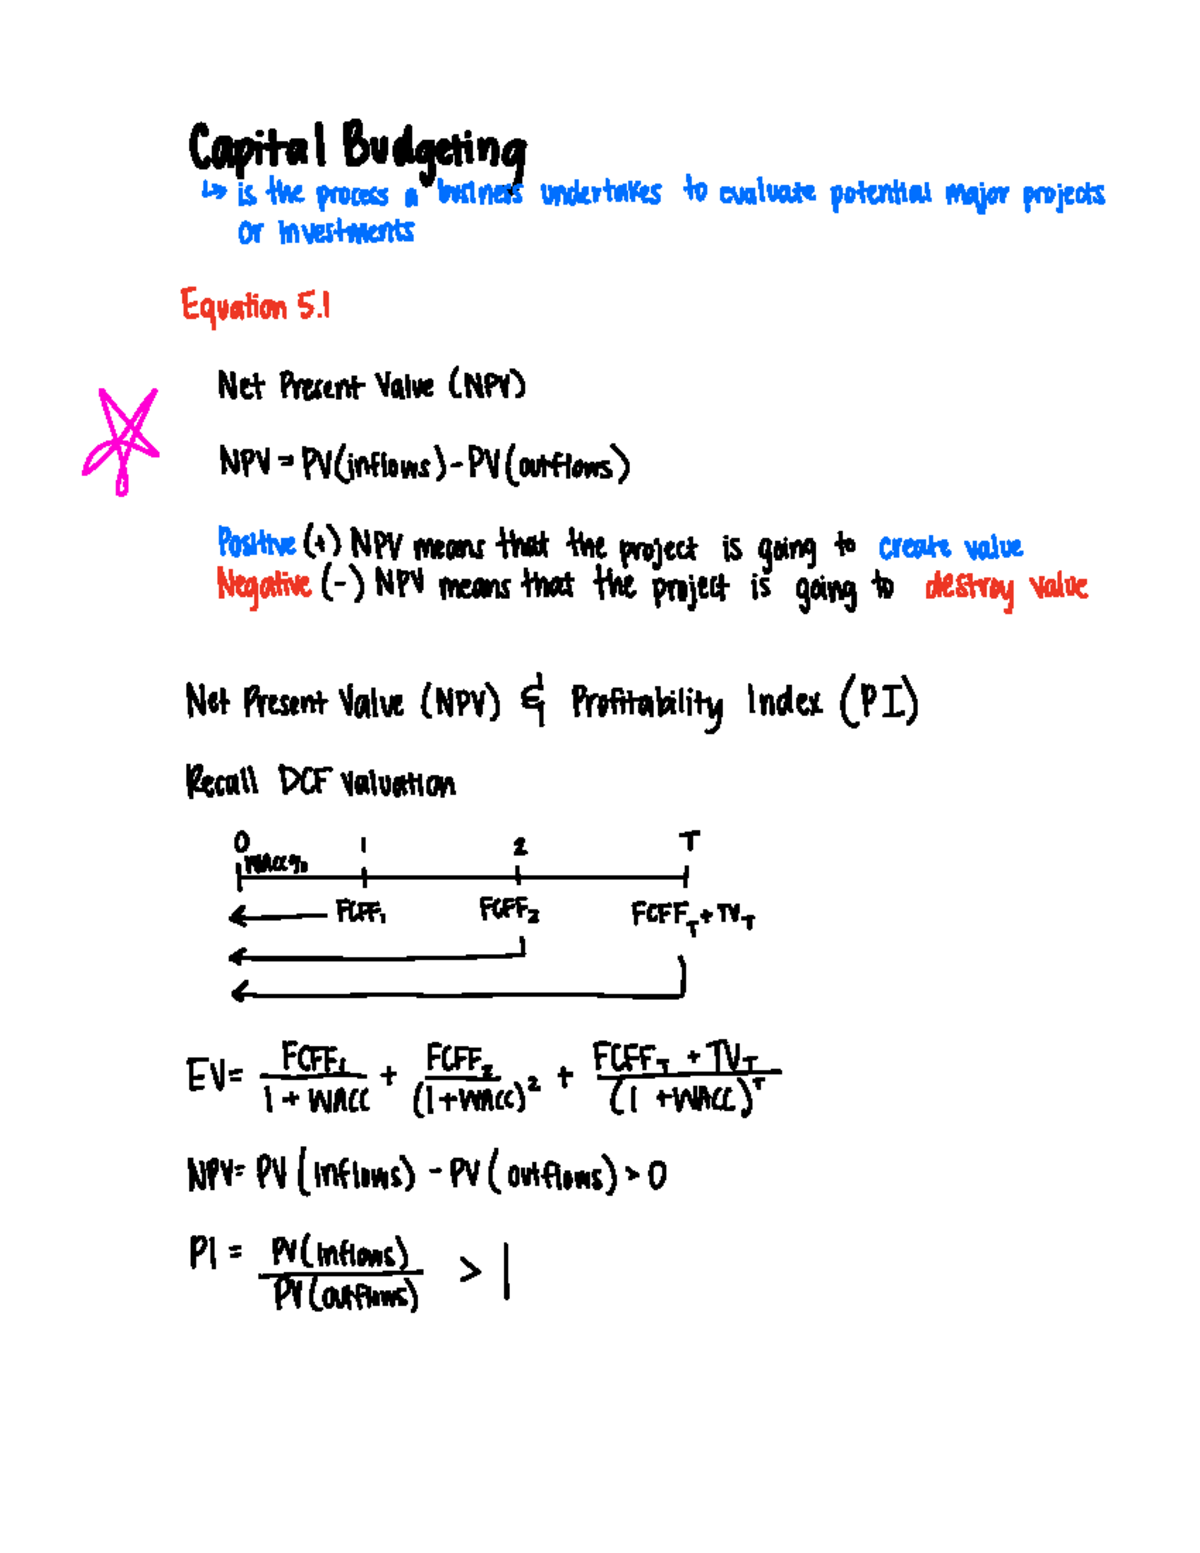 Capital Budgeting
↳ is the process a business undertakes to evaluate potential major projects
or investments
Equation 5.1
Net Present Value (NPV)
NPV = PV(inflows) - PV(outflows)
Positive (+) NPV means that the project is going to create value
Negative (-) NPV means that the project is going to destroy value
Net Present Value (NPV) & Profitability Index (PI)
Recall DCF valuation
0 1 2 T
WACC%
FCFF₁ FCFF₂ FCFF_T + TV_T
EV = FCFF₁ / (1 + WACC) + FCFF₂ / (1+WACC)² + (FCFF_T + TV_T) / (1 + WACC)^T
NPV = PV(inflows) - PV(outflows) > 0
PI = PV(inflows) / PV(outflows) > 1